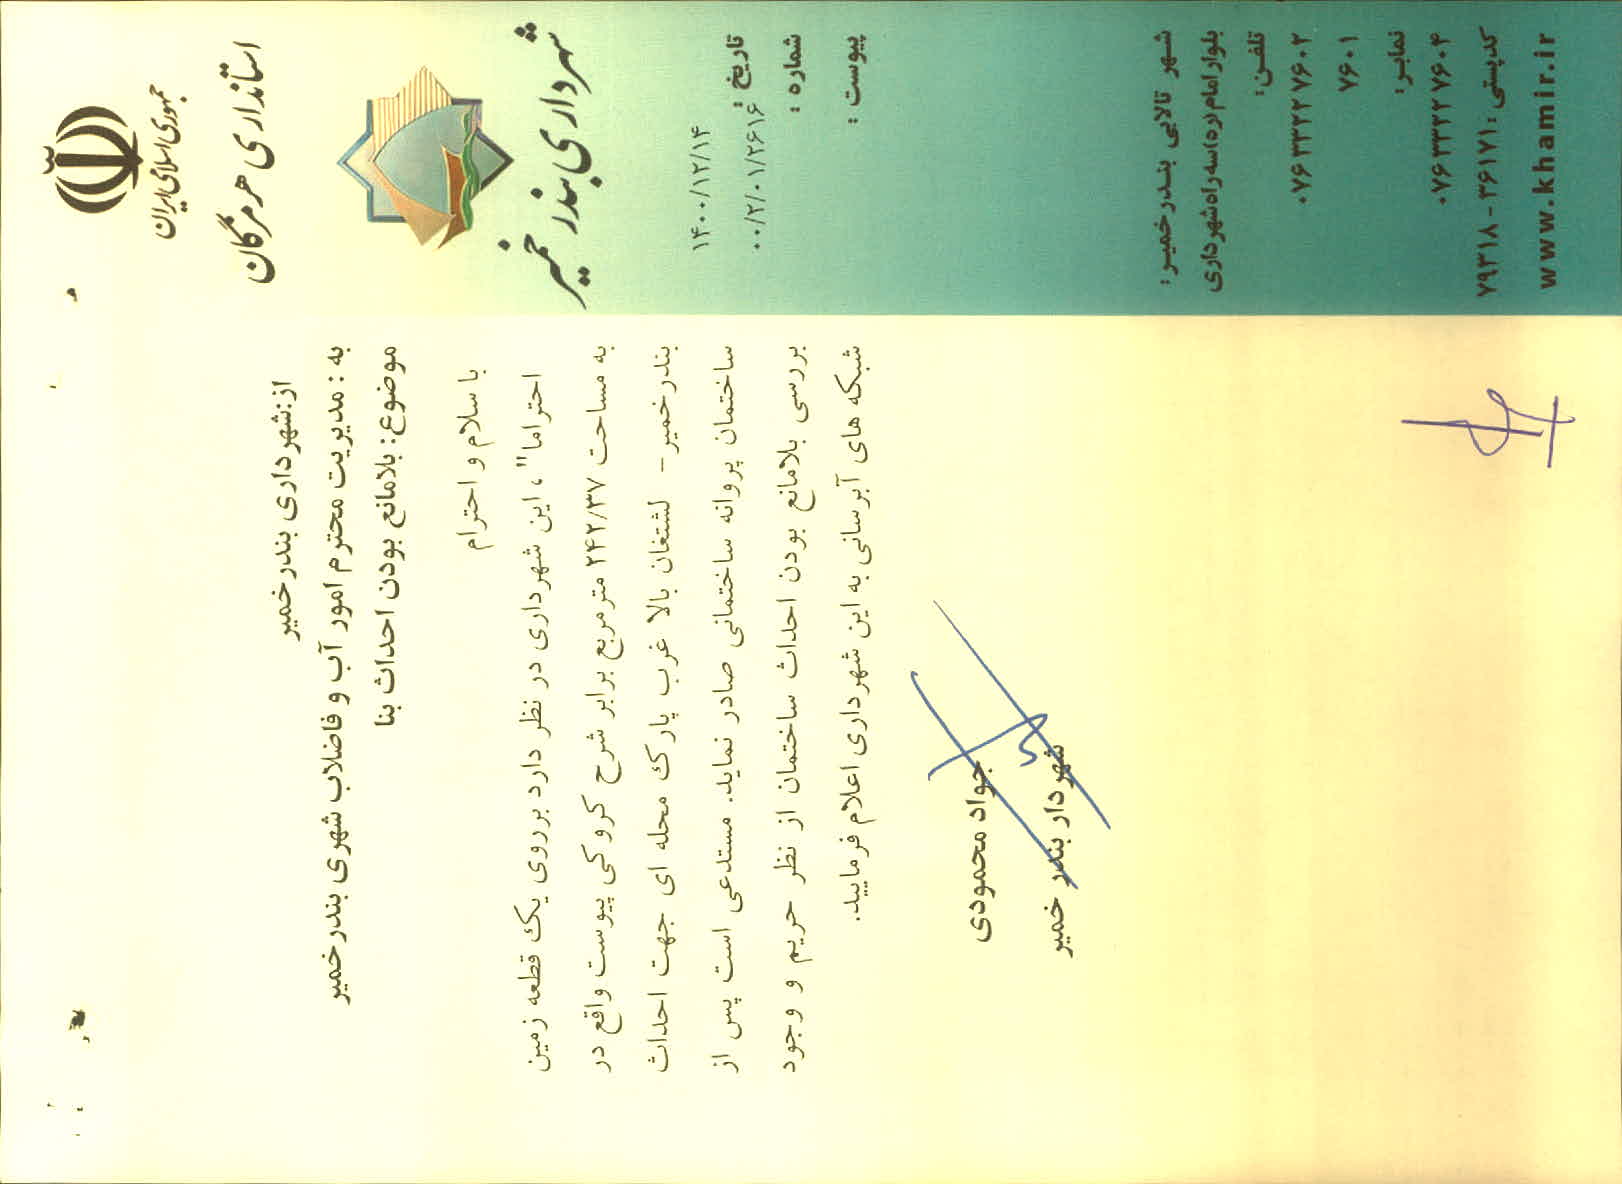 جمهوری اسلامی ایران
استانداری هرمزگان
شهرداری بندر خمیر
تاریخ :
شماره :
پیوست :
۱۴۰۰/۱۲/۱۴
۰۰/۲/۰۱/۲۶۱۶
از:شهرداری بندرخمیر
به : مدیریت محترم امور آب و فاضلاب شهری بندرخمیر
موضوع: بلامانع بودن احداث بنا
با سلام و احترام
احتراما"، این شهرداری در نظر دارد برروی یک قطعه زمین
به مساحت ۲۴۲/۳۷ مترمربع برابر شرح کروکی پیوست واقع در
بندرخمیر- لشتغان بالا غرب پارک محله ای جهت احداث
ساختمان پروانه ساختمانی صادر نماید. مستدعی است پس از
بررسی بلامانع بودن احداث ساختمان از نظر حریم و وجود
شبکه های آبرسانی به این شهرداری اعلام فرمایید.
جواد محمودی
شهردار بندر خمیر
شهر تالابی بندرخمیر:
بلوار امام(ره)سه راه شهرداری
تلفن:
۰۷۶۳۳۲۲۷۶۰۲
۷۶۰۱
نمابر:
۰۷۶۳۳۲۲۷۶۰۴
کدپستی: ۳۶۱۷۱ - ۷۹۳۱۸
www.khamir.ir